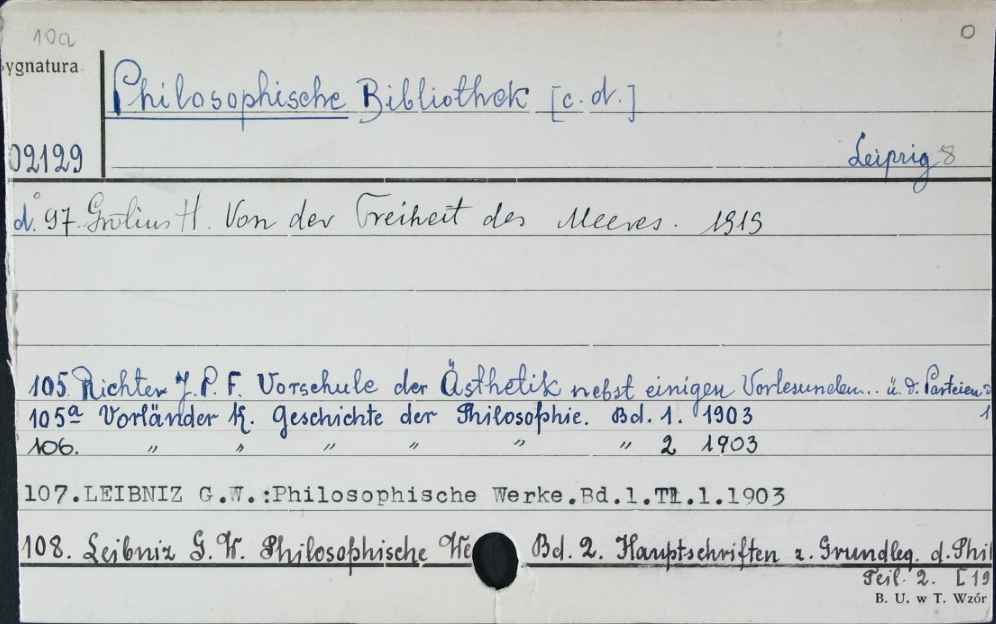 10a
0
ygnatura
Philosophische Bibliothek [c. d.]
02129
Leipzig 8
d. 97. Grotius H. Von der Freiheit des Meeres. 1919
105 Richter J. P. F. Vorschule der Ästhetik nebst einigen Vorlesunden... ü. d. Parteien
105a Vorländer K. Geschichte der Philosophie. Bd. 1. 1903
106. " " " " " " 2 1903
107.LEIBNIZ G.W.:Philosophische Werke.Bd.1.Tl.1.1903
108. Leibniz G. W. Philosophische We Bd. 2. Hauptschriften z. Grundleg. d. Phil
Teil. 2. [19
B. U. w T. Wzór